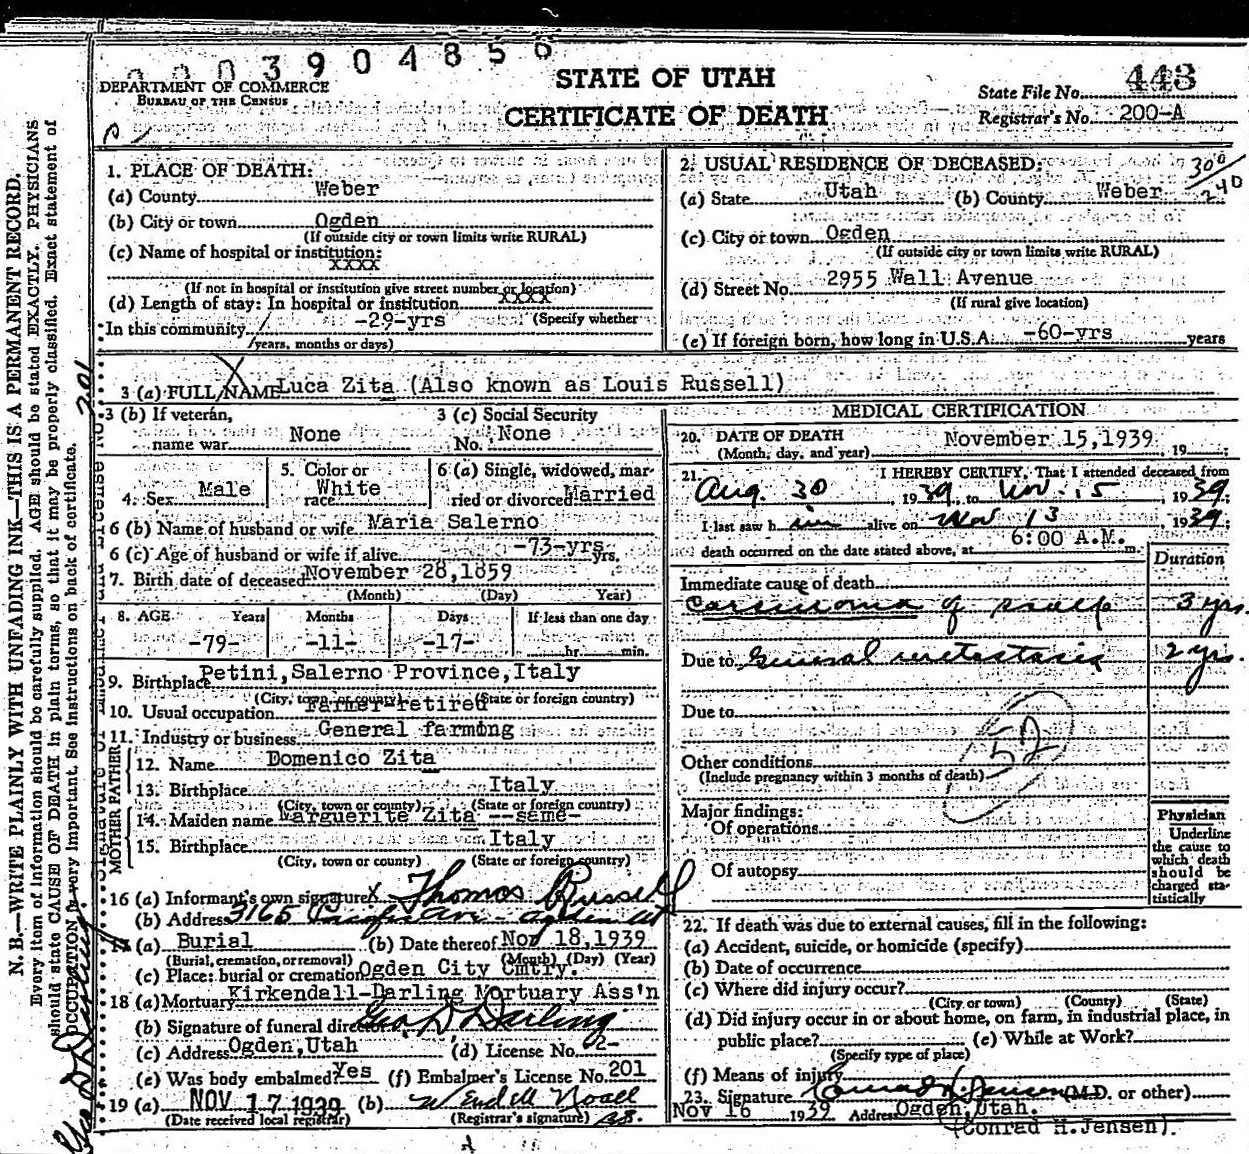 0003904856
DEPARTMENT OF COMMERCE
BUREAU OF THE CENSUS
STATE OF UTAH
CERTIFICATE OF DEATH
State File No. 443
Registrar's No. 200-A
1. PLACE OF DEATH:
(a) County Weber
(b) City or town Ogden
(If outside city or town limits write RURAL)
(c) Name of hospital or institution:
xxxx
(If not in hospital or institution give street number or location)
(d) Length of stay: In hospital or institution xxxx
(Specify whether
In this community -29-yrs
years, months or days)
2. USUAL RESIDENCE OF DECEASED:
300
240
(a) State Utah (b) County Weber
(c) City or town Ogden
(If outside city or town limits write RURAL)
(d) Street No. 2955 Wall Avenue
(If rural give location)
(e) If foreign born, how long in U.S.A. -60-yrs years
3 (a) FULL NAME Luca Zita (Also known as Louis Russell)
3 (b) If veteran, name war None
3 (c) Social Security No. None
4. Sex Male
5. Color or race White
6 (a) Single, widowed, married or divorced Married
6 (b) Name of husband or wife Maria Salerno
6 (c) Age of husband or wife if alive -73-yrs yrs.
7. Birth date of deceased November 28,1859
(Month) (Day) Year)
8. AGE Years Months Days If less than one day
-79- -11- -17- hr. min.
9. Birthplace Petini,Salerno Province,Italy
(City, town or county) (State or foreign country)
10. Usual occupation Farmer-retired
11. Industry or business General farming
FATHER
12. Name Domenico Zita
13. Birthplace Italy
(City, town or county) (State or foreign country)
MOTHER
14. Maiden name Marguerite Zita --same-
15. Birthplace Italy
(City, town or county) (State or foreign country)
16 (a) Informant's own signature X Thomas Russell
(b) Address 3165 Pacific Ave - Ogden Ut
17 (a) Burial (b) Date thereof Nov 18,1939
(Burial, cremation, or removal) (Month) (Day) (Year)
(c) Place: burial or cremation Ogden City Cmtry.
18 (a) Mortuary Kirkendall-Darling Mortuary Ass'n
(b) Signature of funeral director Geo. D Darling
(c) Address Ogden,Utah (d) License No. 2-
(e) Was body embalmed? Yes (f) Embalmer's License No. 201
19 (a) NOV 17 1939 (b) Wendell Noall
(Date received local registrar) (Registrar's signature)
MEDICAL CERTIFICATION
20. DATE OF DEATH November 15,1939 19
(Month, day, and year)
21. I HEREBY CERTIFY, That I attended deceased from
Aug. 30 1939, to Nov. 15, 1939
I last saw him alive on Nov 13 1939,
death occurred on the date stated above, at 6:00 A.M. m.
Duration
Immediate cause of death
Carcinoma of scalp 3 yrs.
Due to General metastasis 2 yrs.
Due to
52
Other conditions
(Include pregnancy within 3 months of death)
Major findings:
Of operations
Of autopsy
Physician
Underline
the cause to
which death
should be
charged sta-
tistically
22. If death was due to external causes, fill in the following:
(a) Accident, suicide, or homicide (specify)
(b) Date of occurrence
(c) Where did injury occur?
(City or town) (County) (State)
(d) Did injury occur in or about home, on farm, in industrial place, in
public place? (e) While at Work?
(Specify type of place)
(f) Means of injury
23. Signature Conrad H. Jensen (M.D. or other)
Nov 16 1939 Address Ogden,Utah.
(Conrad H.Jensen).
N. B.—WRITE PLAINLY WITH UNFADING INK—THIS IS A PERMANENT RECORD.
Every item of information should be carefully supplied. AGE should be stated EXACTLY. PHYSICIANS
should state CAUSE OF DEATH in plain terms, so that it may be properly classified. Exact statement of
OCCUPATION is very important. See instructions on back of certificate.
Geo D Darling
201